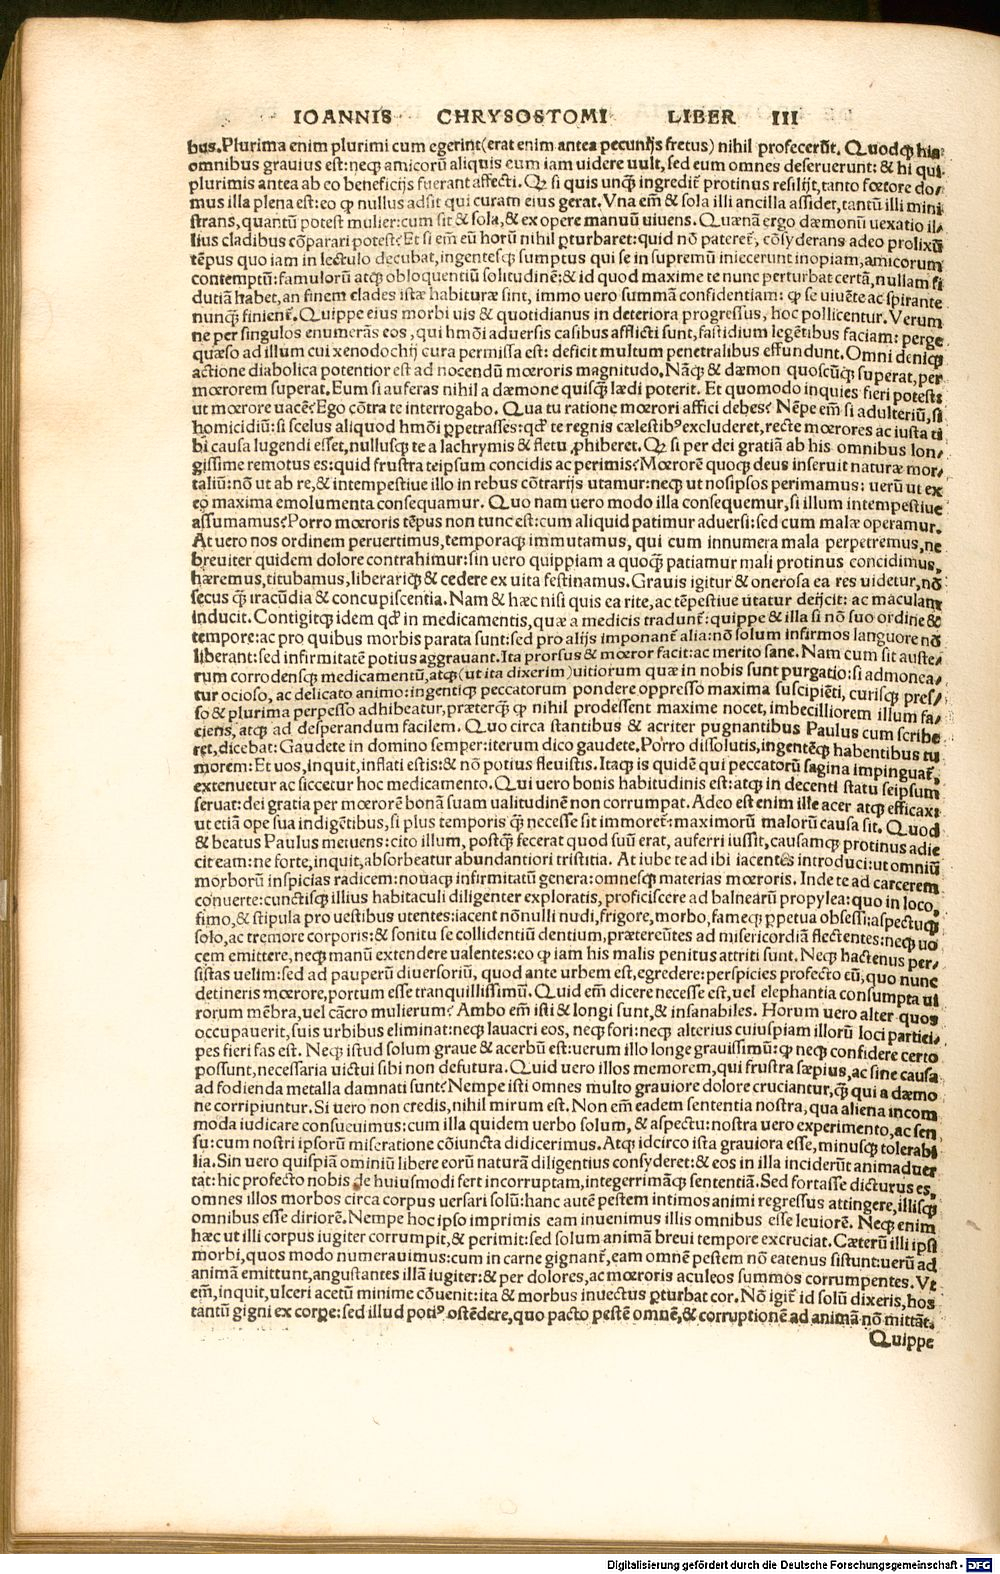 IOANNIS CHRYSOSTOMI LIBER III
bus. Plurima enim plurimi cum egerint (erat enim antea pecunijs fretus) nihil profecerũt. Quodq́ȝ his
omnibus grauius est: neqȝ amicorũ aliquis eum iam uidere uult, sed eum omnes deseruerunt: & hi qui
plurimis antea ab eo beneficijs fuerant affecti. Qȝ si quis unq̃ȝ ingredit̃ protinus resilijt, tanto fœtore do⸗
mus illa plena est: eo ꝙ nullus adsit qui curam eius gerat. Vna em̃ & sola illi ancilla assidet, tantũ illi mini
strans, quantũ potest mulier: cum sit & sola, & ex opere manuũ uiuens. Quænã ergo dæmonũ uexatio il⸗
lius cladibus cõparari potest? Et si em̃ eũ horũ nihil ꝑturbaret: quid nõ pateret̃, cõsyderans adeo prolixũ
tẽpus quo iam in lectulo decubat, ingentesqȝ sumptus qui se in supremũ iniecerunt inopiam, amicorum
contemptũ: famulorũ atqȝ obloquentiũ solitudinẽ: & id quod maxime te nunc perturbat certã, nullam fi
dutiã habet, an finem clades istæ habituræ sint, immo uero summã confidentiam: ꝙ se uiuẽte ac spirante
nunq̃ȝ finient̃. Quippe eius morbi uis & quotidianus in deteriora progressus, hoc pollicentur. Verum
ne per singulos enumerãs eos, qui hmõi aduersis casibus afflicti sunt, fastidium legẽtibus faciam: perge
quæso ad illum cui xenodochij cura permissa est: deficit multum penetralibus effundunt. Omni deniqȝ
actione diabolica potentior est ad nocendũ mœroris magnitudo. Nãqȝ & dæmon quoscũqȝ superat, per
mœrorem superat. Eum si auferas nihil a dæmone quisq̃ȝ lædi poterit. Et quomodo inquies fieri potest:
ut mœrore uacẽ? Ego cõtra te interrogabo. Qua tu ratione mœrori affici debes? Nẽpe em̃ si adulteriũ, si
homicidiũ: si scelus aliquod hmõi ꝑpetrasses: qđ te regnis cælestibꝰ excluderet, recte mœrores ac iusta ti
bi causa lugendi esset, nullusqȝ te a lachrymis & fletu ꝓhiberet. Qȝ si per dei gratiã ab his omnibus lon⸗
gissime remotus es: quid frustra teipsum concidis ac perimis? Mœrorẽ quoqȝ deus inseruit naturæ mor⸗
taliũ: nõ ut ab re, & intempestiue illo in rebus cõtrarijs utamur: neqȝ ut nosipsos perimamus: uerũ ut ex
eo maxima emolumenta consequamur. Quo nam uero modo illa consequemur, si illum intempestiue
assumamus? Porro mœroris tẽpus non tunc est: cum aliquid patimur aduersi: sed cum malæ operamur.
At uero nos ordinem peruertimus, temporaqȝ immutamus, qui cum innumera mala perpetremus, ne
breuiter quidem dolore contrahimur: sin uero quippiam a quoq̃ȝ patiamur mali protinus concidimus,
hæremus, titubamus, liberariqȝ & cedere ex uita festinamus. Grauis igitur & onerosa ea res uidetur, nõ
secus q̃ȝ iracũdia & concupiscentia. Nam & hæc nisi quis ea rite, ac tẽpestiue utatur deijcit: ac maculam
inducit. Contigitqȝ idem qđ in medicamentis, quæ a medicis tradunt̃: quippe & illa si nõ suo ordine &
tempore: ac pro quibus morbis parata sunt: sed pro alijs imponant̃ alia: nõ solum infirmos languore nõ
liberant: sed infirmitatẽ potius aggrauant. Ita prorsus & mœror facit: ac merito sane. Nam cum sit auste⸗
rum corrodensqȝ medicamentũ, atqȝ (ut ita dixerim) uitiorum quæ in nobis sunt purgatio: si admonea⸗
tur ocioso, ac delicato animo: ingentiqȝ peccatorum pondere oppresso maxima suscipiẽti, curisqȝ pres⸗
so & plurima perpesso adhibeatur, præterq̃ȝ ꝙ nihil prodessent maxime nocet, imbecilliorem illum fa⸗
ciens, atqȝ ad desperandum facilem. Quo circa stantibus & acriter pugnantibus Paulus cum scribe
ret, dicebat: Gaudete in domino semper: iterum dico gaudete. Porro dissolutis, ingentẽqȝ habentibus tu
morem: Et uos, inquit, inflati estis: & nõ potius fleuistis. Itaqȝ is quidẽ qui peccatorũ sagina impinguat̃,
extenuetur ac siccetur hoc medicamento. Qui uero bonis habitudinis est: atqȝ in decenti statu seipsum
seruat: dei gratia per mœrorẽ bonã suam ualitudinẽ non corrumpat. Adeo est enim ille acer atqȝ efficax:
ut etiã ope sua indigẽtibus, si plus temporis q̃ȝ necesse sit immoret̃: maximorũ malorũ causa sit. Quod
& beatus Paulus metuens: cito illum, postq̃ȝ fecerat quod suũ erat, auferri iussit, causamqȝ protinus adie
cit eam: ne forte, inquit, absorbeatur abundantiori tristitia. At iube te ad ibi iacentes introduci: ut omniũ
morborũ inspicias radicem: nouaqȝ infirmitatũ genera: omnesqȝ materias mœroris. Inde te ad carcerem
conuerte: cunctisqȝ illius habitaculi diligenter exploratis, proficiscere ad balnearũ propylea: quo in loco,
fimo, & stipula pro uestibus utentes: iacent nõnulli nudi, frigore, morbo, fameqȝ ꝑpetua obsessi: aspectuqȝ
solo, ac tremore corporis: & sonitu se collidentiũ dentium, præterẽntes ad misericordiã flectentes: neqȝ uo
cem emittere, neqȝ manũ extendere ualentes: eo ꝙ iam his malis penitus attriti sunt. Neqȝ hactenus per⸗
sistas uelim: sed ad pauperũ diuersoriũ, quod ante urbem est, egredere: perspicies profecto eũ, quo nunc
detineris mœrore, portum esse tranquillissimũ. Quid em̃ dicere necesse est, uel elephantia consumpta ui
rorum mẽbra, uel cãcro mulierum? Ambo em̃ isti & longi sunt, & insanabiles. Horum uero alter quos
occupauerit, suis urbibus eliminat: neqȝ lauacri eos, neqȝ fori: neqȝ alterius cuiuspiam illorũ loci partici⸗
pes fieri fas est. Neqȝ istud solum graue & acerbũ est: uerum illo longe grauissimũ: ꝙ neqȝ confidere certo
possunt, necessaria uictui sibi non defutura. Quid uero illos memorem, qui frustra sæpius, ac sine causa
ad fodienda metalla damnati sunt? Nempe isti omnes multo grauiore dolore cruciantur, q̃ȝ qui a dæmo
ne corripiuntur. Si uero non credis, nihil mirum est. Non em̃ eadem sententia nostra, qua aliena incom
moda iudicare consueuimus: cum illa quidem uerbo solum, & aspectu: nostra uero experimento, ac sen
su: cum nostri ipsorũ miseratione cõiuncta didicerimus. Atqȝ idcirco ista grauiora esse, minusqȝ tolerabi
lia. Sin uero quispiã ominiũ libere eorũ naturã diligentius consyderet: & eos in illa inciderũt animaduer
tat: hic profecto nobis de huiusmodi fert incorruptam, integerrimãqȝ sententiã. Sed fortasse dicturus es,
omnes illos morbos circa corpus uersari solũ: hanc autẽ pestem intimos animi regressus attingere, illisqȝ
omnibus esse diriorẽ. Nempe hoc ipso imprimis eam inuenimus illis omnibus esse leuiorẽ. Neqȝ enim
hæc ut illi corpus iugiter corrumpit, & perimit: sed solum animã breui tempore excruciat. Cæterũ illi ipsi
morbi, quos modo numerauimus: cum in carne gignant̃, eam omnẽ pestem nõ eatenus sistunt: uerũ ad
animã emittunt, angustantes illã iugiter: & per dolores, ac mœroris aculeos summos corrumpentes. Vt
em̃, inquit, ulceri acetũ minime cõuenit: ita & morbus inuectus ꝑturbat cor. Nõ igit̃ id solũ dixeris, hos
tantũ gigni ex corꝑe: sed illud potiꝰ ostẽdere, quo pacto pestẽ omnẽ, & corruptionẽ ad animã nõ mittãt.
Quippe
Digitalisierung gefördert durch die Deutsche Forschungsgemeinschaft - DFG